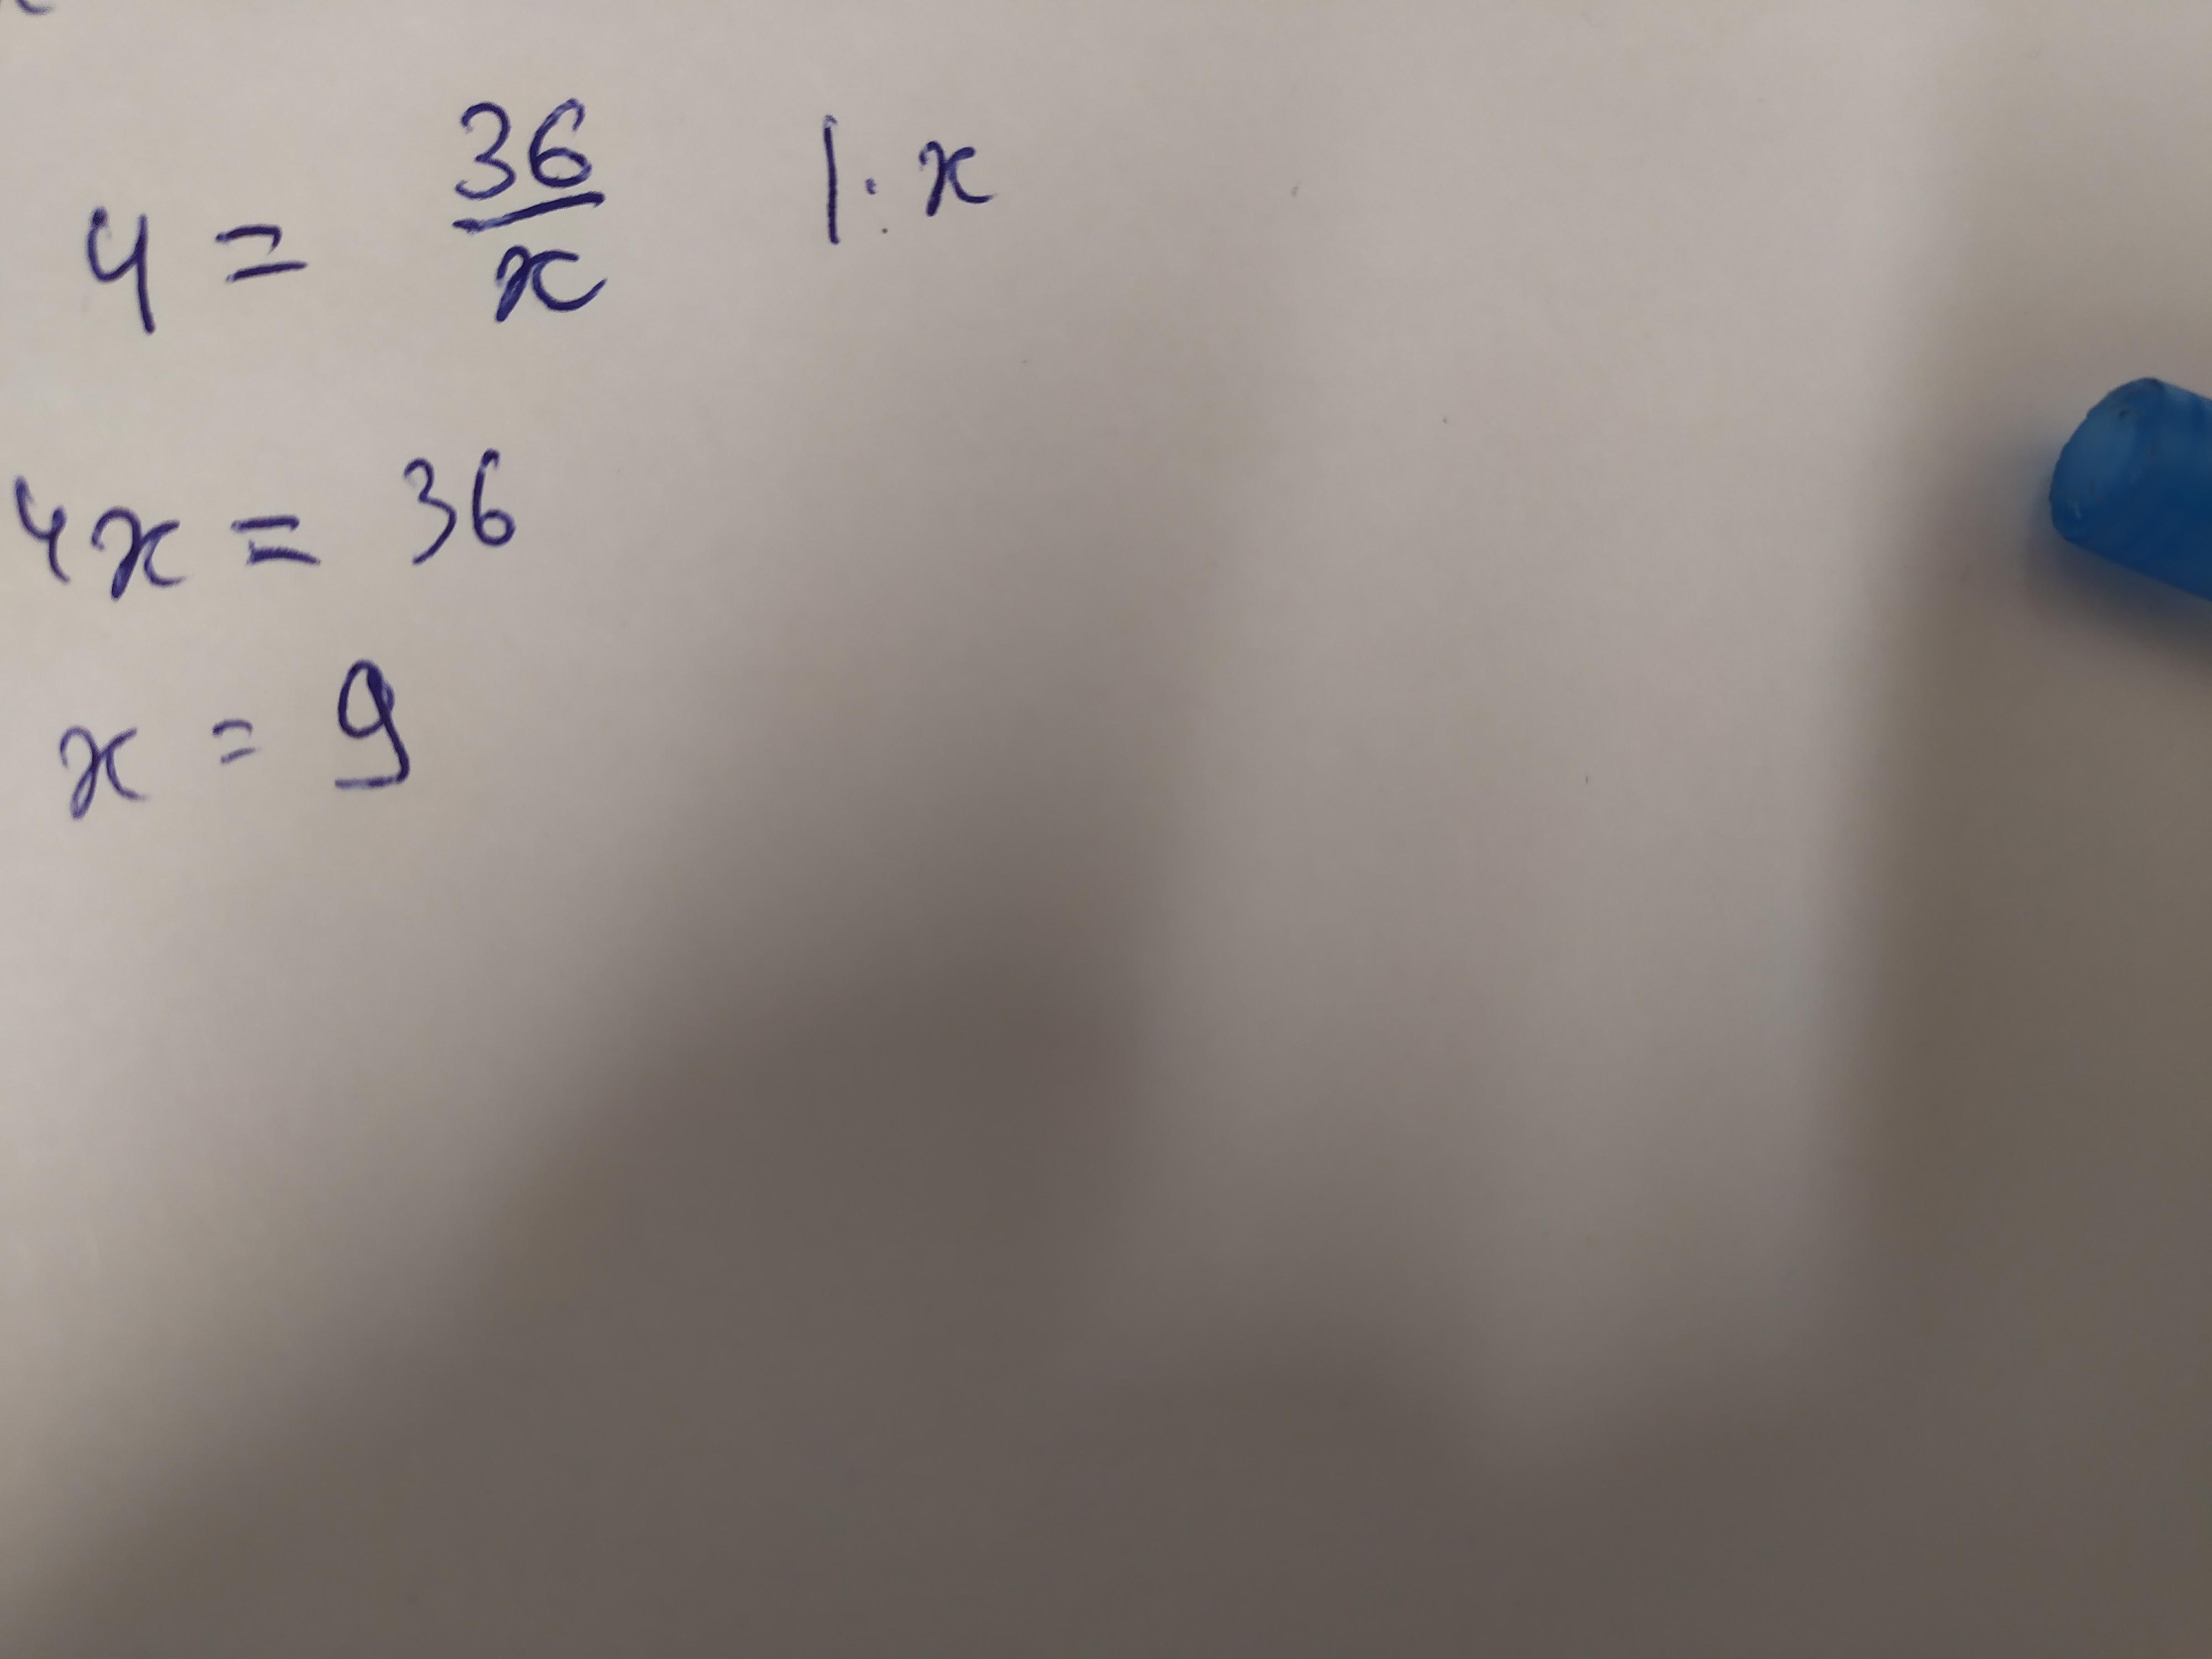 4 = 36/x |· x
4x = 36
x = 9